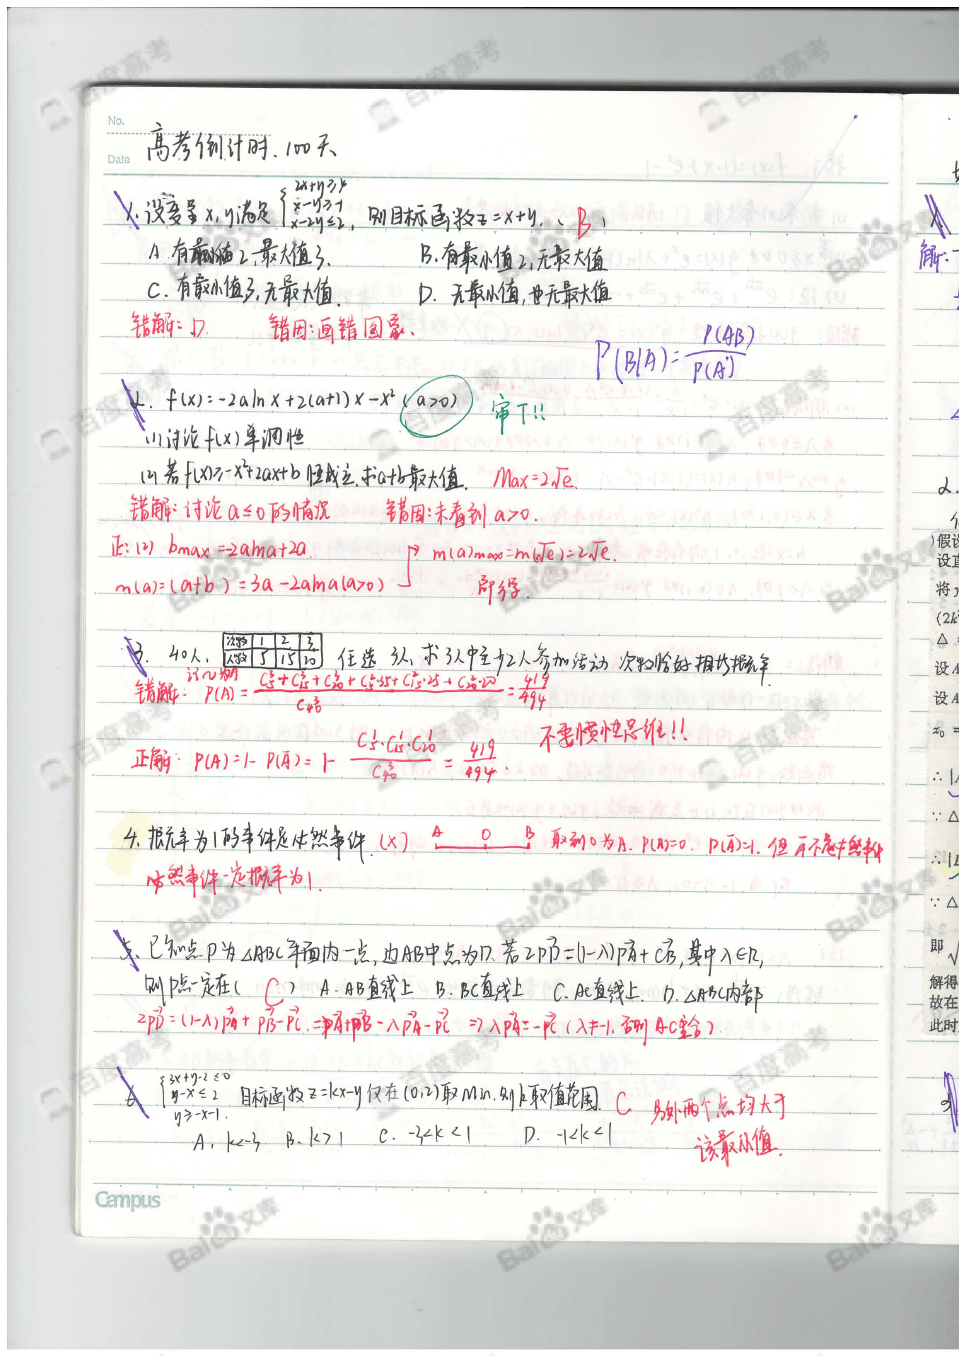 No.
Date
高考倒计时.100天
1. 设变量x,y满足 { 2x+y≥4 x-y≥-1 x-2y≤2, 则目标函数z=x+y.( B )
A 有最小值2,最大值3. B. 有最小值2,无最大值
C. 有最小值3,无最大值. D. 无最小值,也无最大值
错解: D. 错因:画错图象.
P(B|A)=P(AB)/P(A)
2. f(x)=-2alnx+2(a+1)x-x² (a>0) 审下!!
(1) 讨论f(x)单调性
(2) 若f(x)≥-x²+2ax+b恒成立,求a+b最大值. Max=2√e.
错解: 讨论a≤0的情况 错因:未看到a>0.
正:(2) bmax=2a-2alna m(a)max=m(√e)=2√e.
m(a)=(a+b)=3a-2alna(a>0)
3. 40人, 次数 1 2 3 人数 5 15 20 任选3人,求3人中至少2人参加活动次数恰好相等概率.
错解: P(A)= =419/494
正解: P(A)=1-P(Ā)=1- C₅¹·C₁₅¹·C₂₀¹/C₄₀³ = 419/494. 不要惯性思维!!
4. 概率为1的事件是必然事件.(×) A 0 B 取到0为A. P(A)=0 P(Ā)=1. 但Ā不是必然事件
必然事件一定概率为1.
5. 已知点P为△ABC平面内一点,边AB中点为D.若2PD=(1-λ)PA+CB,其中λ∈R,
则P点一定在( C ) A. AB直线上 B. BC直线上 C. AC直线上. D. △ABC内部
2PD=(1-λ)PA+PB-PC.=PA+PB-λPA-PC ⇒λPA=-PC (λ≠-1,否则AC重合)
6. { 3x+y-2≤0 y-x≤2 y≥-x-1. 目标函数z=kx-y仅在(0,2)取Min.则k取值范围. C 另外两个点均大于
该最小值.
A. k<-3 B. k>1 C. -3<k<1 D. -1<k<1
Campus